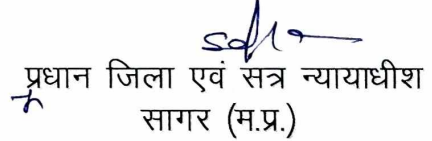 प्रधान जिला एवं सत्र न्यायाधीश
सागर (म.प्र.)